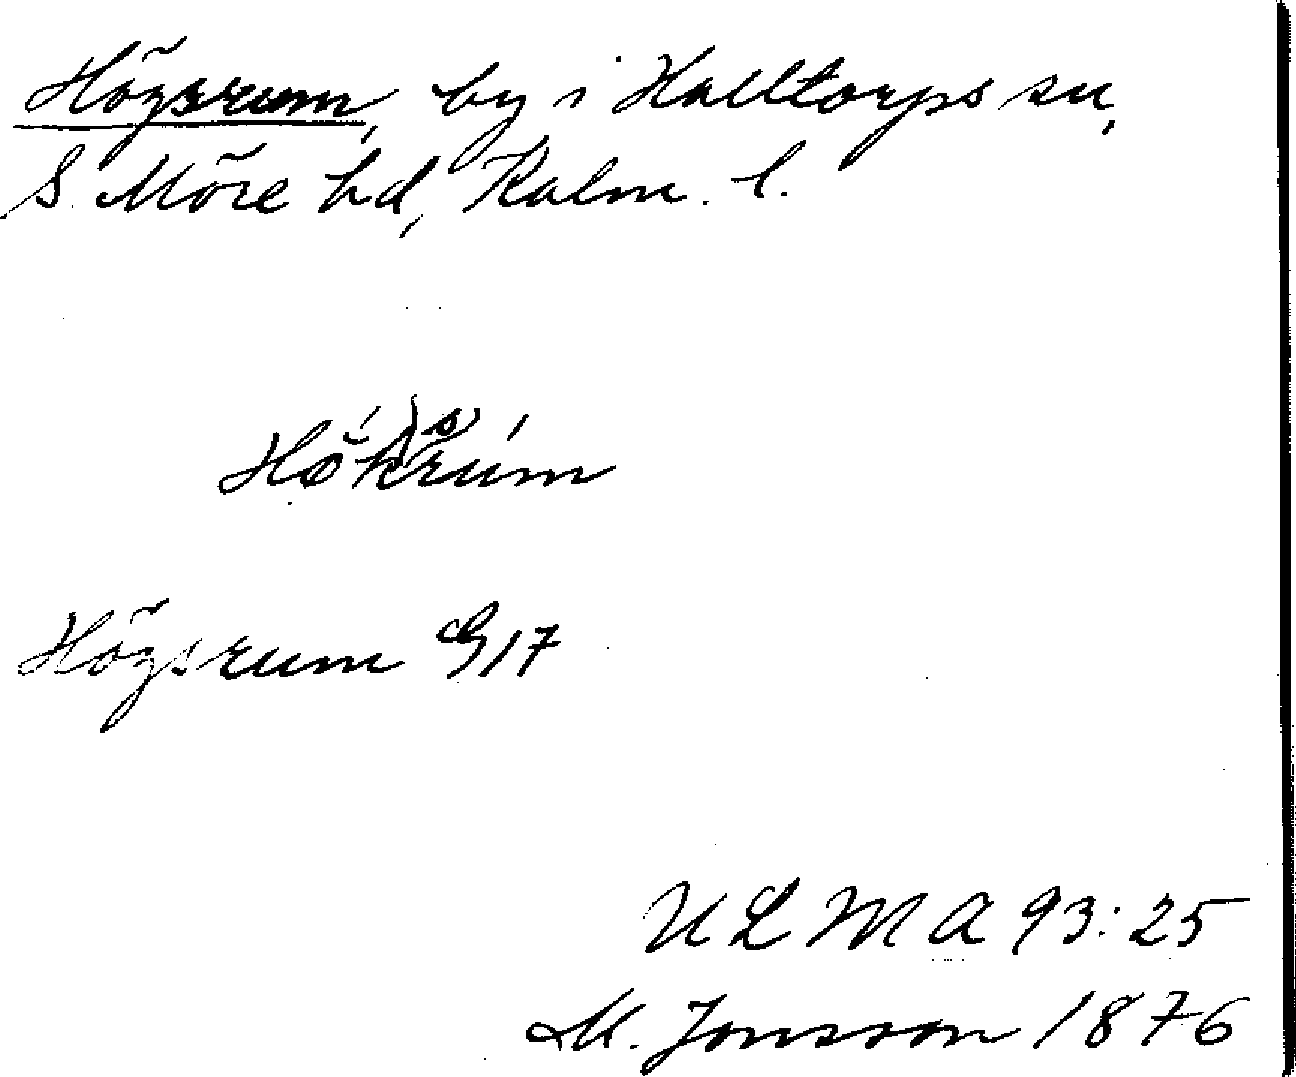 Högsrum, by i Halltorps sn,
S. Möre hd, Kalm. l.
Högsrum G17
ULMA 93:25
M. Jonsson 1876